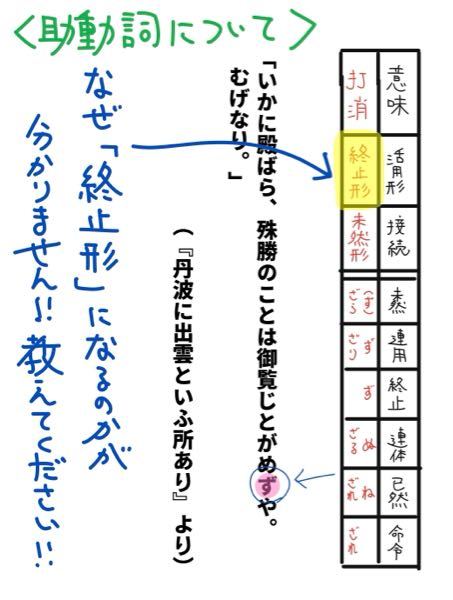 ＜助動詞について＞
意味
活用形
接続
未然
連用
終止
連体
已然
命令
打消
終止形
未然形
(ず)
ざら
ず
ざり
ず
ぬ
ざる
ね
ざれ
ざれ
「いかに殿ばら、殊勝のことは御覧じとがめずや。
むげなり。」
（『丹波に出雲といふ所あり』より）
なぜ「終止形」になるのかが
分かりません!!教えてください!!